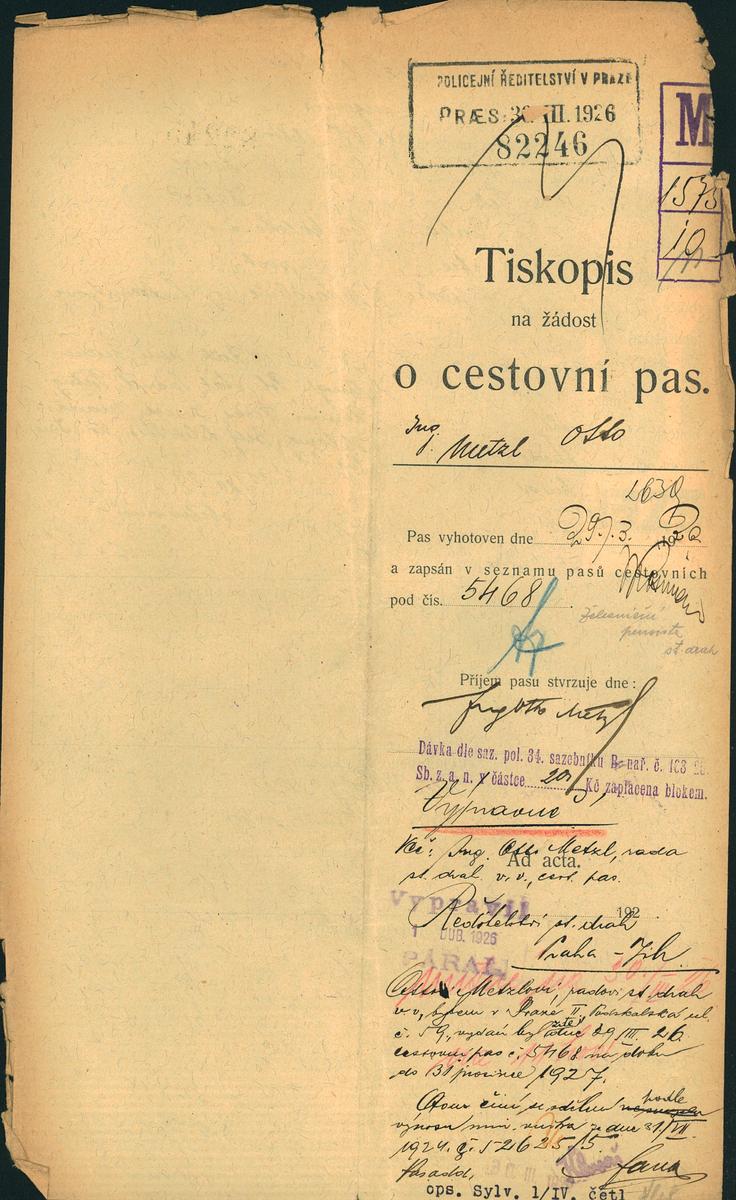 POLICEJNÍ ŘEDITELSTVÍ V PRAZE
PRÆS: 30. III. 1926
82246
M
1575
10
Tiskopis
na žádost
o cestovní pas.
Ing. Metzl Otto
Pas vyhotoven dne 29./3. 1926
a zapsán v seznamu pasů cestovních
pod čís. 5468
železniční
st. drah
Příjem pasu stvrzuje dne:
Ing Otto Metzl
Dávka dle saz. pol. 34. sazebníku B nař. č. 163
Sb. z. a. n. v částce 20 Kč zaplacena blokem.
Výpravně
Věc: Ing. Otto Metzl, rada
Ad acta.
st. drah v. v., cest. pas.
Vypravil
192
Ředitelství st. drah
1 DUB. 1926
Praha - Jih.
PÁRAL
Otto Metzlovi, radovi st. drah
v. v., bytem v Praze II, Podskalská ul.
č. 59, vydán byl zde dne 29/III. 26.
cestovní pas č. 5468 na dobu
do 31 prosince 1927.
O tom činí se sdělení podle
výnosu min. vnitra ze dne 31/VII.
1924, č. 52625/5
ops. Sylv. 1/IV. četl